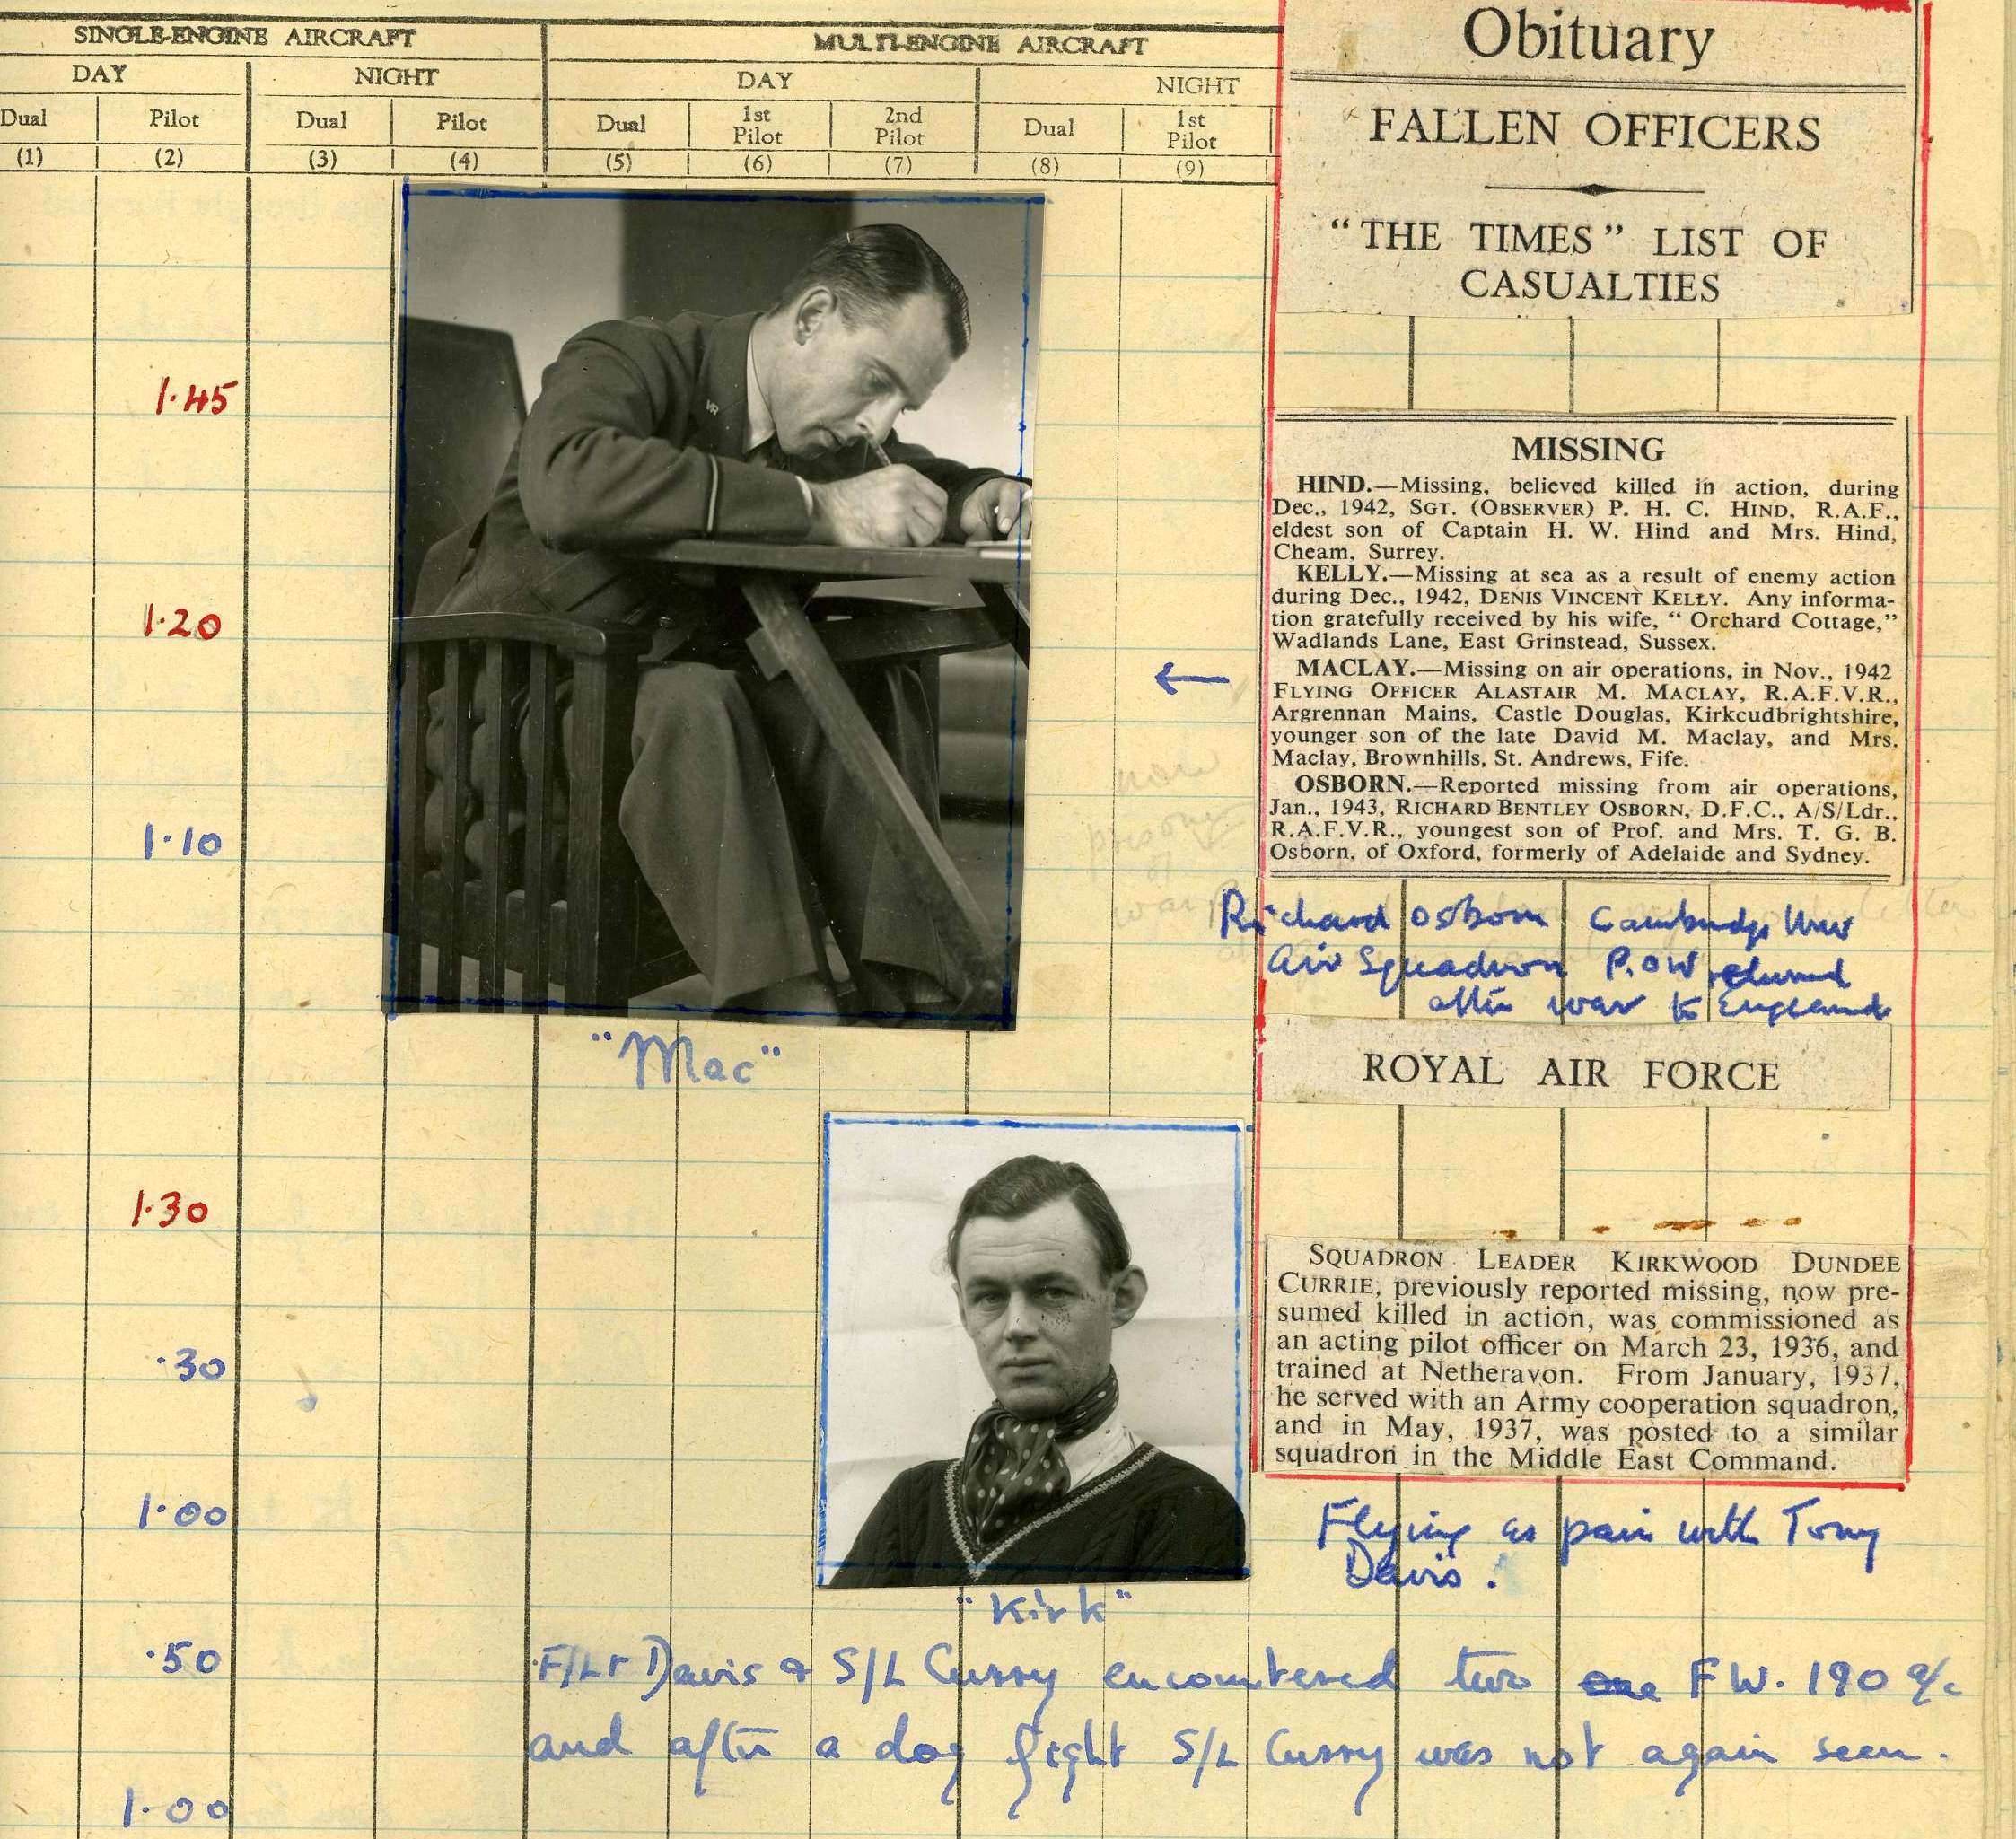 SINGLE-ENGINE AIRCRAFT
MULTI-ENGINE AIRCRAFT
DAY
NIGHT
DAY
NIGHT
Dual
Pilot
Dual
Pilot
Dual
1st
Pilot
2nd
Pilot
Dual
1st
Pilot
(1)
(2)
(3)
(4)
(5)
(6)
(7)
(8)
(9)
1.45
1.20
1.10
1.30
.30
1.00
.50
1.00
VR
"Mac"
"Kirk"
Obituary
FALLEN OFFICERS
"THE TIMES" LIST OF
CASUALTIES
MISSING
HIND.—Missing, believed killed in action, during
Dec., 1942, SGT. (OBSERVER) P. H. C. HIND, R.A.F.,
eldest son of Captain H. W. Hind and Mrs. Hind,
Cheam, Surrey.
KELLY.—Missing at sea as a result of enemy action
during Dec., 1942, DENIS VINCENT KELLY. Any informa-
tion gratefully received by his wife, "Orchard Cottage,"
Wadlands Lane, East Grinstead, Sussex.
MACLAY.—Missing on air operations, in Nov., 1942
FLYING OFFICER ALASTAIR M. MACLAY, R.A.F.V.R.,
Argrennan Mains, Castle Douglas, Kirkcudbrightshire,
younger son of the late David M. Maclay, and Mrs.
Maclay, Brownhills, St. Andrews, Fife.
OSBORN.—Reported missing from air operations,
Jan., 1943, RICHARD BENTLEY OSBORN, D.F.C., A/S/Ldr.,
R.A.F.V.R., youngest son of Prof. and Mrs. T. G. B.
Osborn, of Oxford, formerly of Adelaide and Sydney.
now
prisoner
of
war
Richard Osborn Cambridge Univ
Air Squadron P.O.W returned
after war to England
ROYAL AIR FORCE
SQUADRON LEADER KIRKWOOD DUNDEE
CURRIE, previously reported missing, now pre-
sumed killed in action, was commissioned as
an acting pilot officer on March 23, 1936, and
trained at Netheravon. From January, 1937,
he served with an Army cooperation squadron,
and in May, 1937, was posted to a similar
squadron in the Middle East Command.
Flying as pair with Tony
Davis.
F/Lt Davis & S/L Curry encountered two one F.W. 190 a/c
and after a dog fight S/L Curry was not again seen.